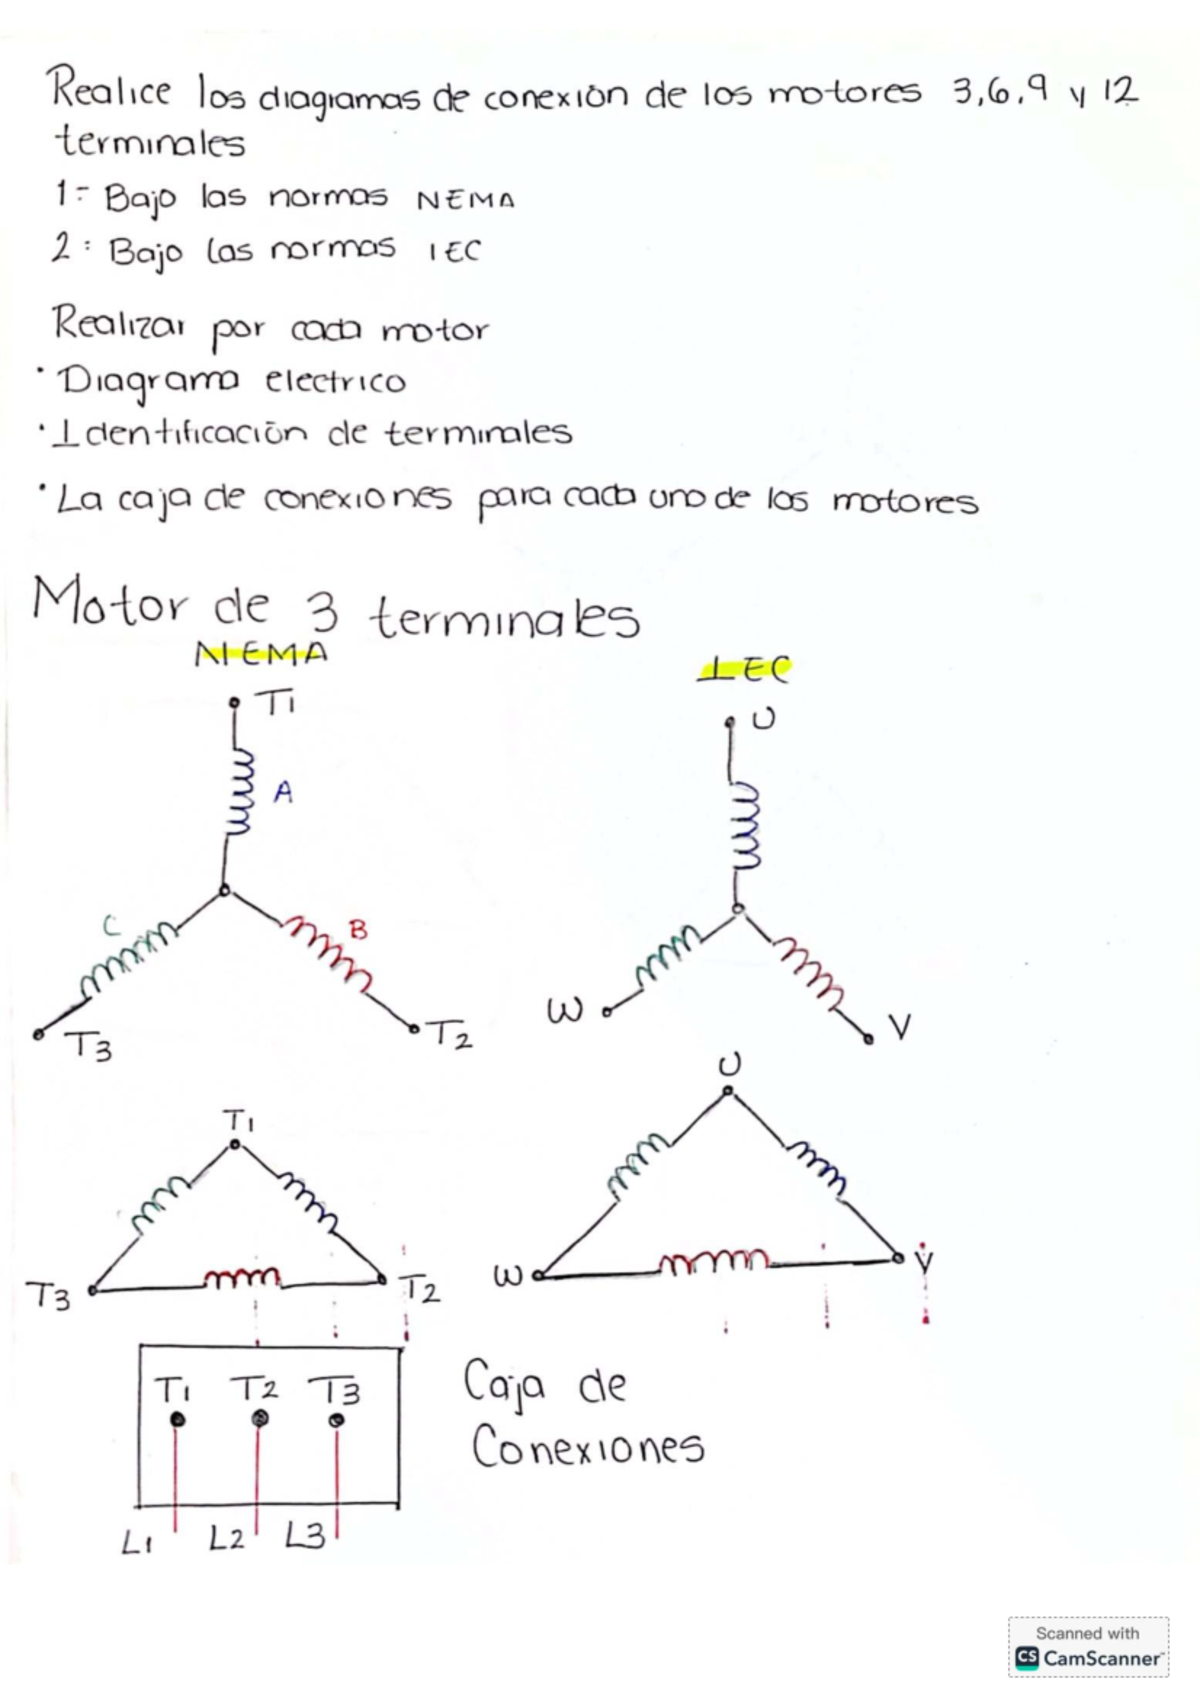 Realice los diagramas de conexión de los motores 3,6,9 y 12
terminales
1:- Bajo las normas NEMA
2: Bajo las normas IEC
Realizar por cada motor
· Diagrama electrico
· Identificación de terminales
· La caja de conexiones para cada uno de los motores
Motor de 3 terminales
NEMA
T1
A
C
B
T3
T2
T1
T3
T2
IEC
U
W
V
U
W
V
T1 T2 T3
L1 L2 L3
Caja de
Conexiones
Scanned with
CS CamScanner